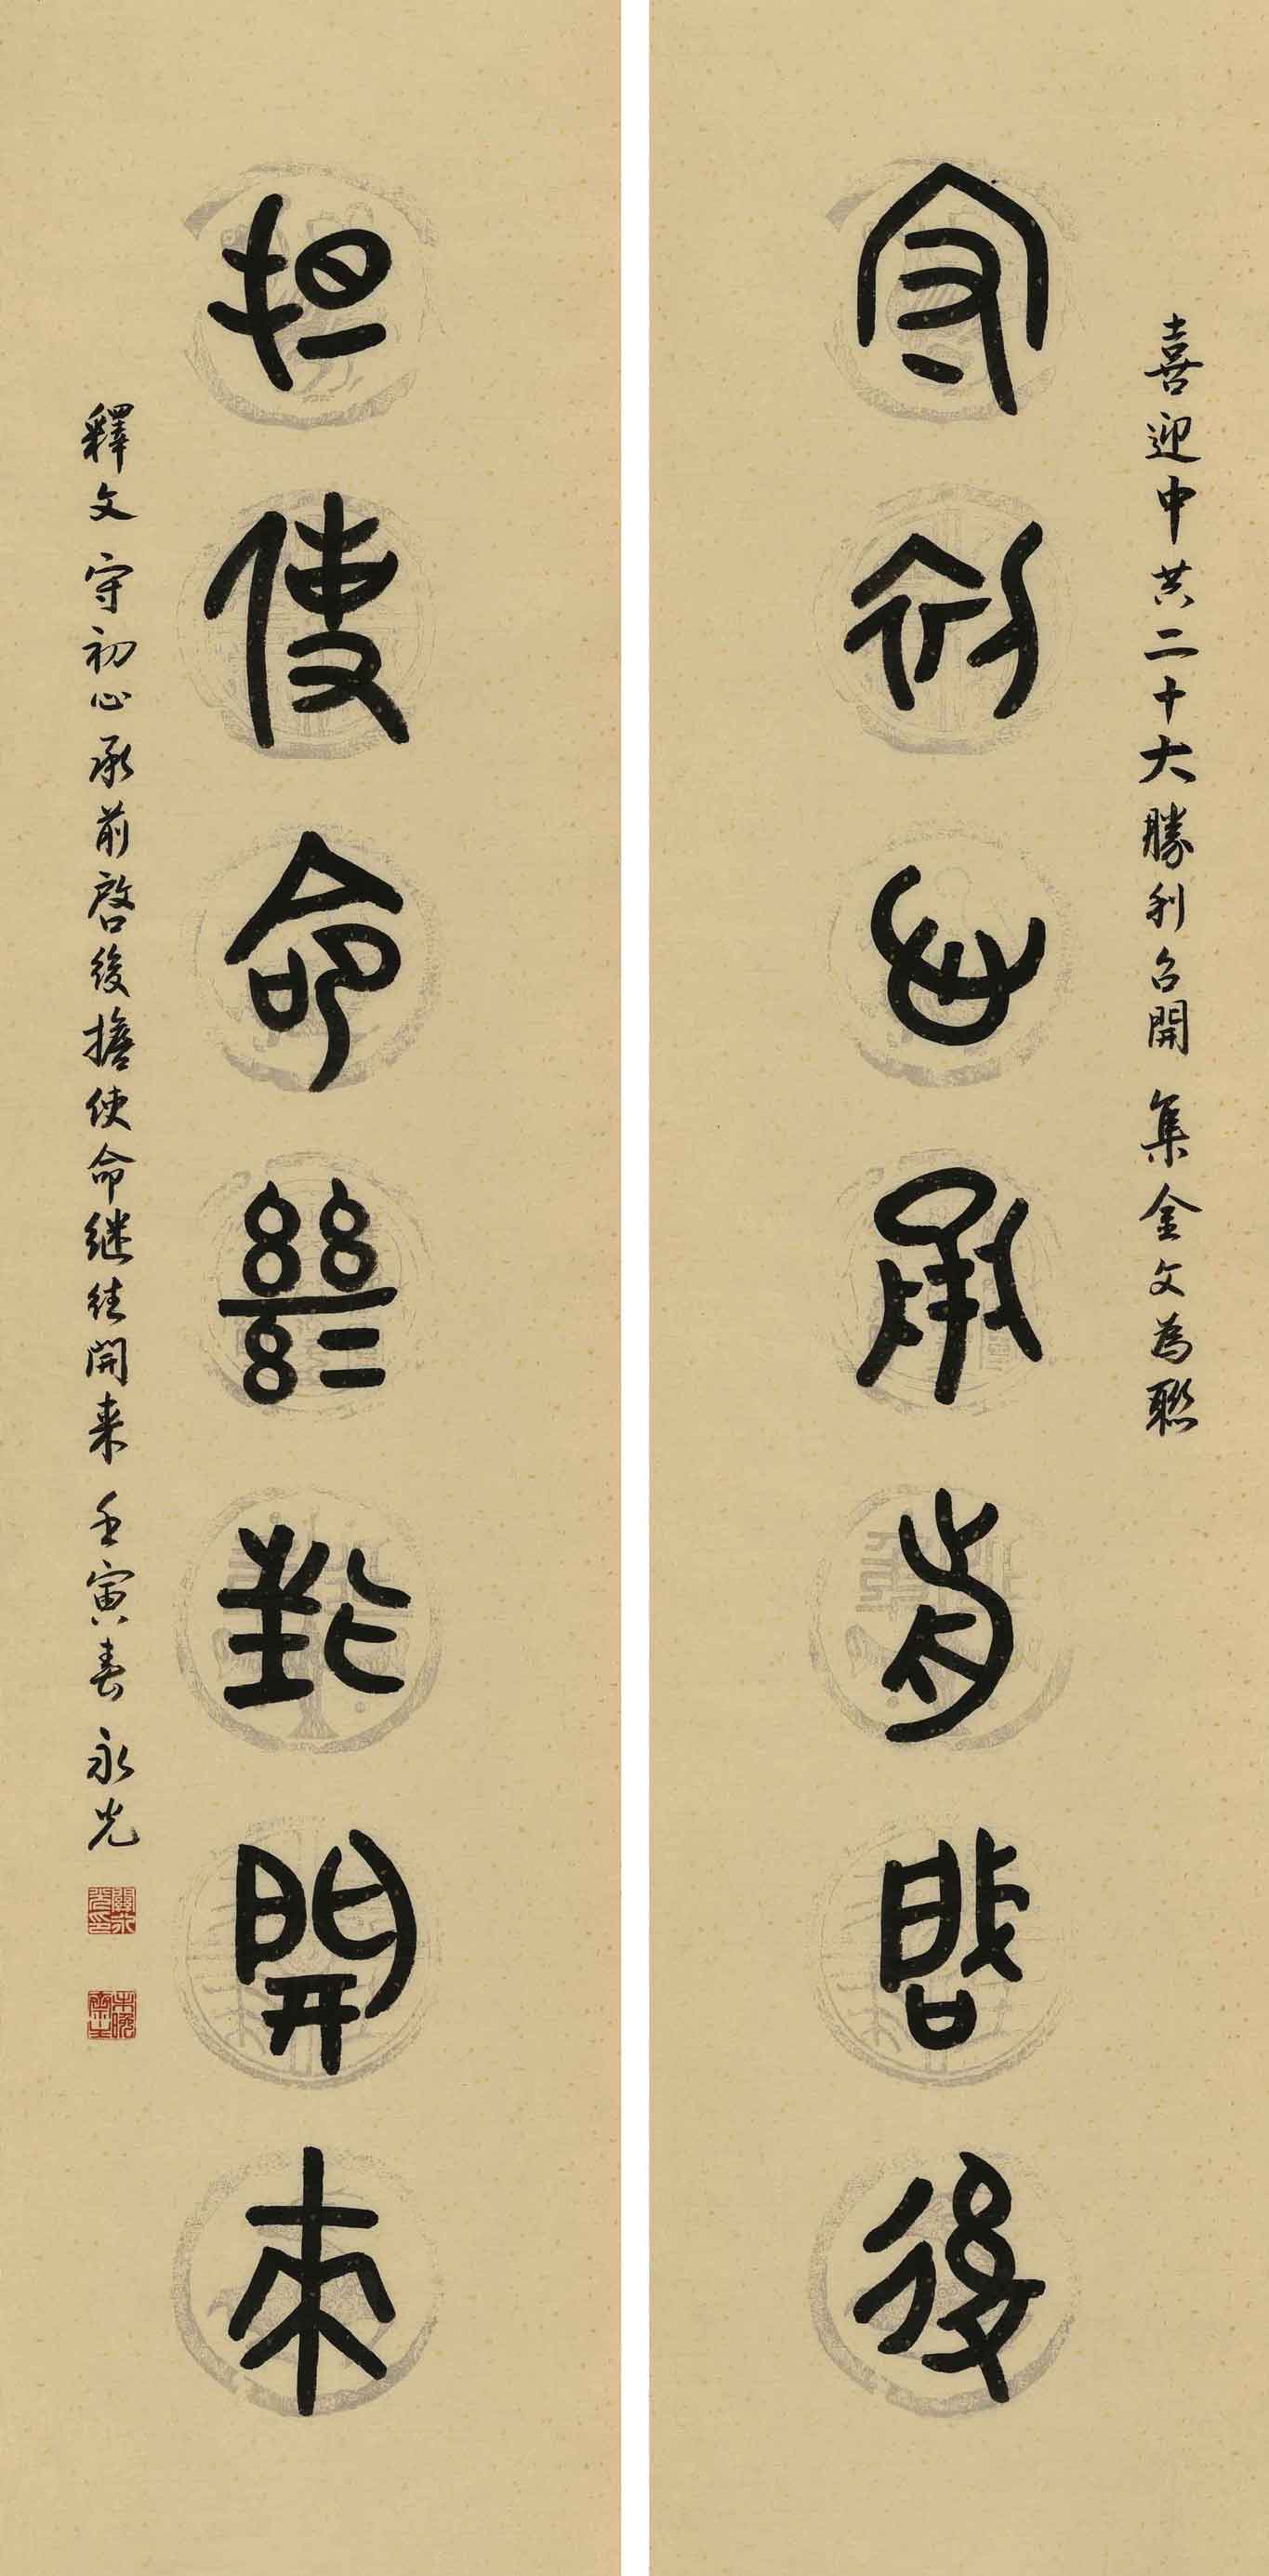 喜迎中共二十大勝利召開 集金文為聯
守初心承前啓後
担使命繼往開来
釋文 守初心承前啓後擔使命继往開来 壬寅春 永光